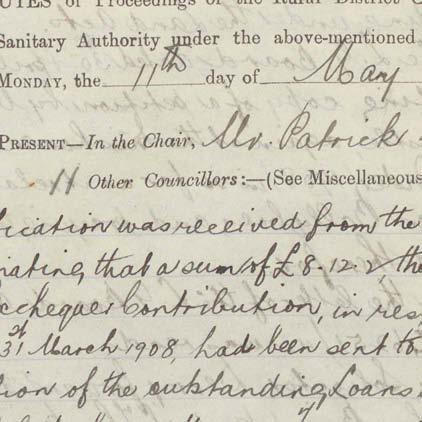 UTES of Proceedings of the Rural District C
Sanitary Authority under the above-mentioned
MONDAY, the 11th day of May
PRESENT—In the Chair, Mr. Patrick
11 Other Councillors:—(See Miscellaneous
ication was received from the
mating, that a sum of £8.12.2, the
xchequer Contribution, in res
31st March 1908, had been sent to
tion of the outstanding Loans